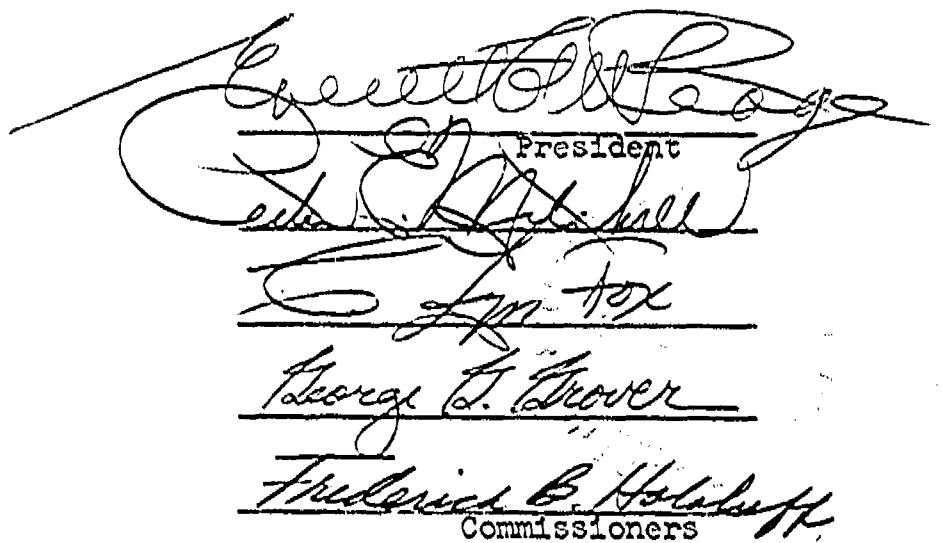 President
Peter E. Mitchell
Lyn Fox
George G. Grover
Frederick B. Holoboff
Commissioners